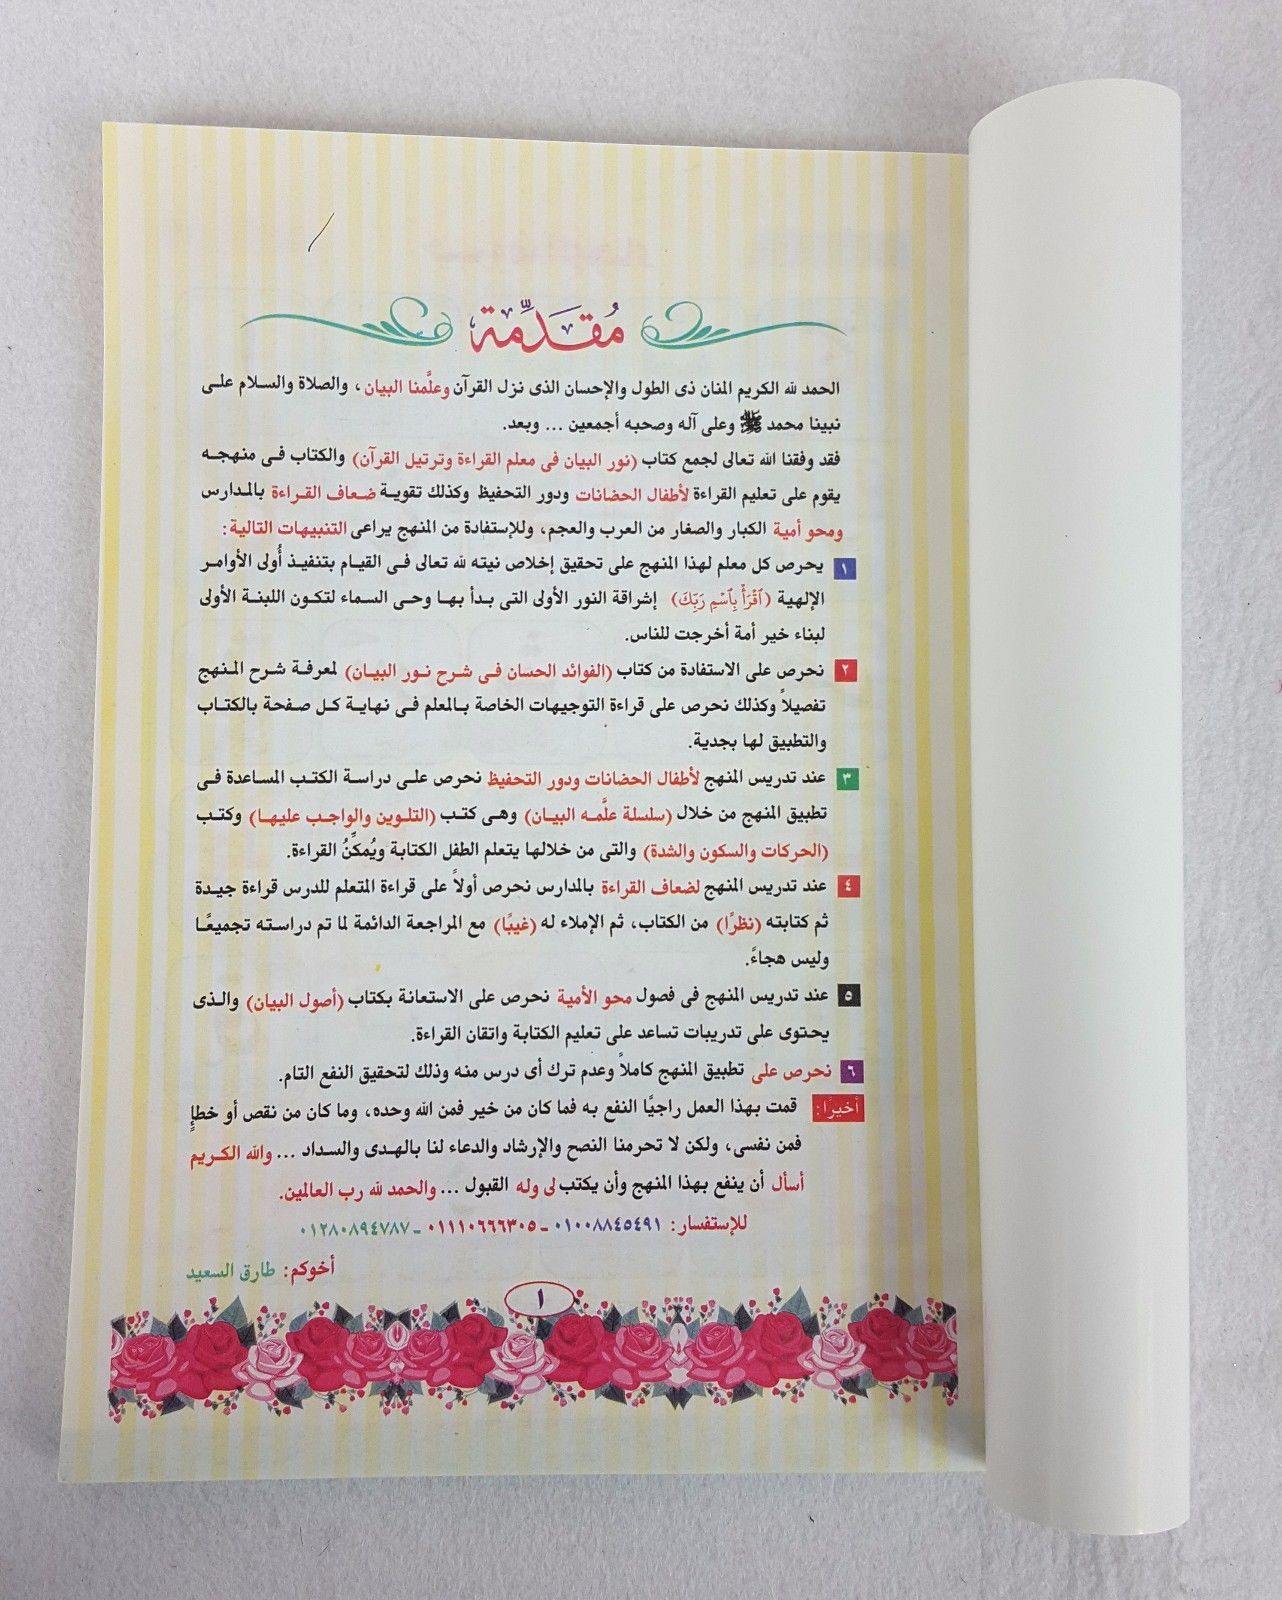 مُقَدِّمة
الحمد لله الكريم المنان ذى الطول والإحسان الذى نزل القرآن وعلَّمنا البيان، والصلاة والسلام على
نبينا محمد ﷺ وعلى آله وصحبه أجمعين ... وبعد.
فقد وفقنا الله تعالى لجمع كتاب (نور البيان فى معلم القراءة وترتيل القرآن) والكتاب فى منهجه
يقوم على تعليم القراءة لأطفال الحضانات ودور التحفيظ وكذلك تقوية ضعاف القراءة بالمدارس
ومحو أمية الكبار والصغار من العرب والعجم، وللإستفادة من المنهج يراعى التنبيهات التالية:
١ يحرص كل معلم لهذا المنهج على تحقيق إخلاص نيته لله تعالى فى القيام بتنفيذ أُولى الأوامر
الإلهية (ٱقۡرَأۡ بِٱسۡمِ رَبِّكَ) إشراقة النور الأولى التى بدأ بها وحى السماء لتكون اللبنة الأولى
لبناء خير أمة أخرجت للناس.
٢ نحرص على الاستفادة من كتاب (الفوائد الحسان فى شرح نور البيان) لمعرفة شرح المنهج
تفصيلاً وكذلك نحرص على قراءة التوجيهات الخاصة بالمعلم فى نهاية كل صفحة بالكتاب
والتطبيق لها بجدية.
٣ عند تدريس المنهج لأطفال الحضانات ودور التحفيظ نحرص على دراسة الكتب المساعدة فى
تطبيق المنهج من خلال (سلسلة علَّمه البيان) وهى كتب (التلوين والواجب عليها) وكتب
(الحركات والسكون والشدة) والتى من خلالها يتعلم الطفل الكتابة ويُمكِّنُ القراءة.
٤ عند تدريس المنهج لضعاف القراءة بالمدارس نحرص أولاً على قراءة المتعلم للدرس قراءة جيدة
ثم كتابته (نظرًا) من الكتاب، ثم الإملاء له (غيبًا) مع المراجعة الدائمة لما تم دراسته تجميعًا
وليس هجاءً.
٥ عند تدريس المنهج فى فصول محو الأمية نحرص على الاستعانة بكتاب (أصول البيان) والذى
يحتوى على تدريبات تساعد على تعليم الكتابة واتقان القراءة.
٦ نحرص على تطبيق المنهج كاملاً وعدم ترك أى درس منه وذلك لتحقيق النفع التام.
أخيرًا: قمت بهذا العمل راجيًا النفع به فما كان من خير فمن الله وحده، وما كان من نقص أو خطإٍ
فمن نفسى، ولكن لا تحرمنا النصح والإرشاد والدعاء لنا بالهدى والسداد ... والله الكريم
أسأل أن ينفع بهذا المنهج وأن يكتب لى وله القبول ... والحمد لله رب العالمين.
للإستفسار: ٠١٠٠٨٨٤٥٤٩١ - ٠١١١٠٦٦٦٣٠٥ - ٠١٢٨٠٨٩٤٧٨٧
أخوكم: طارق السعيد
١